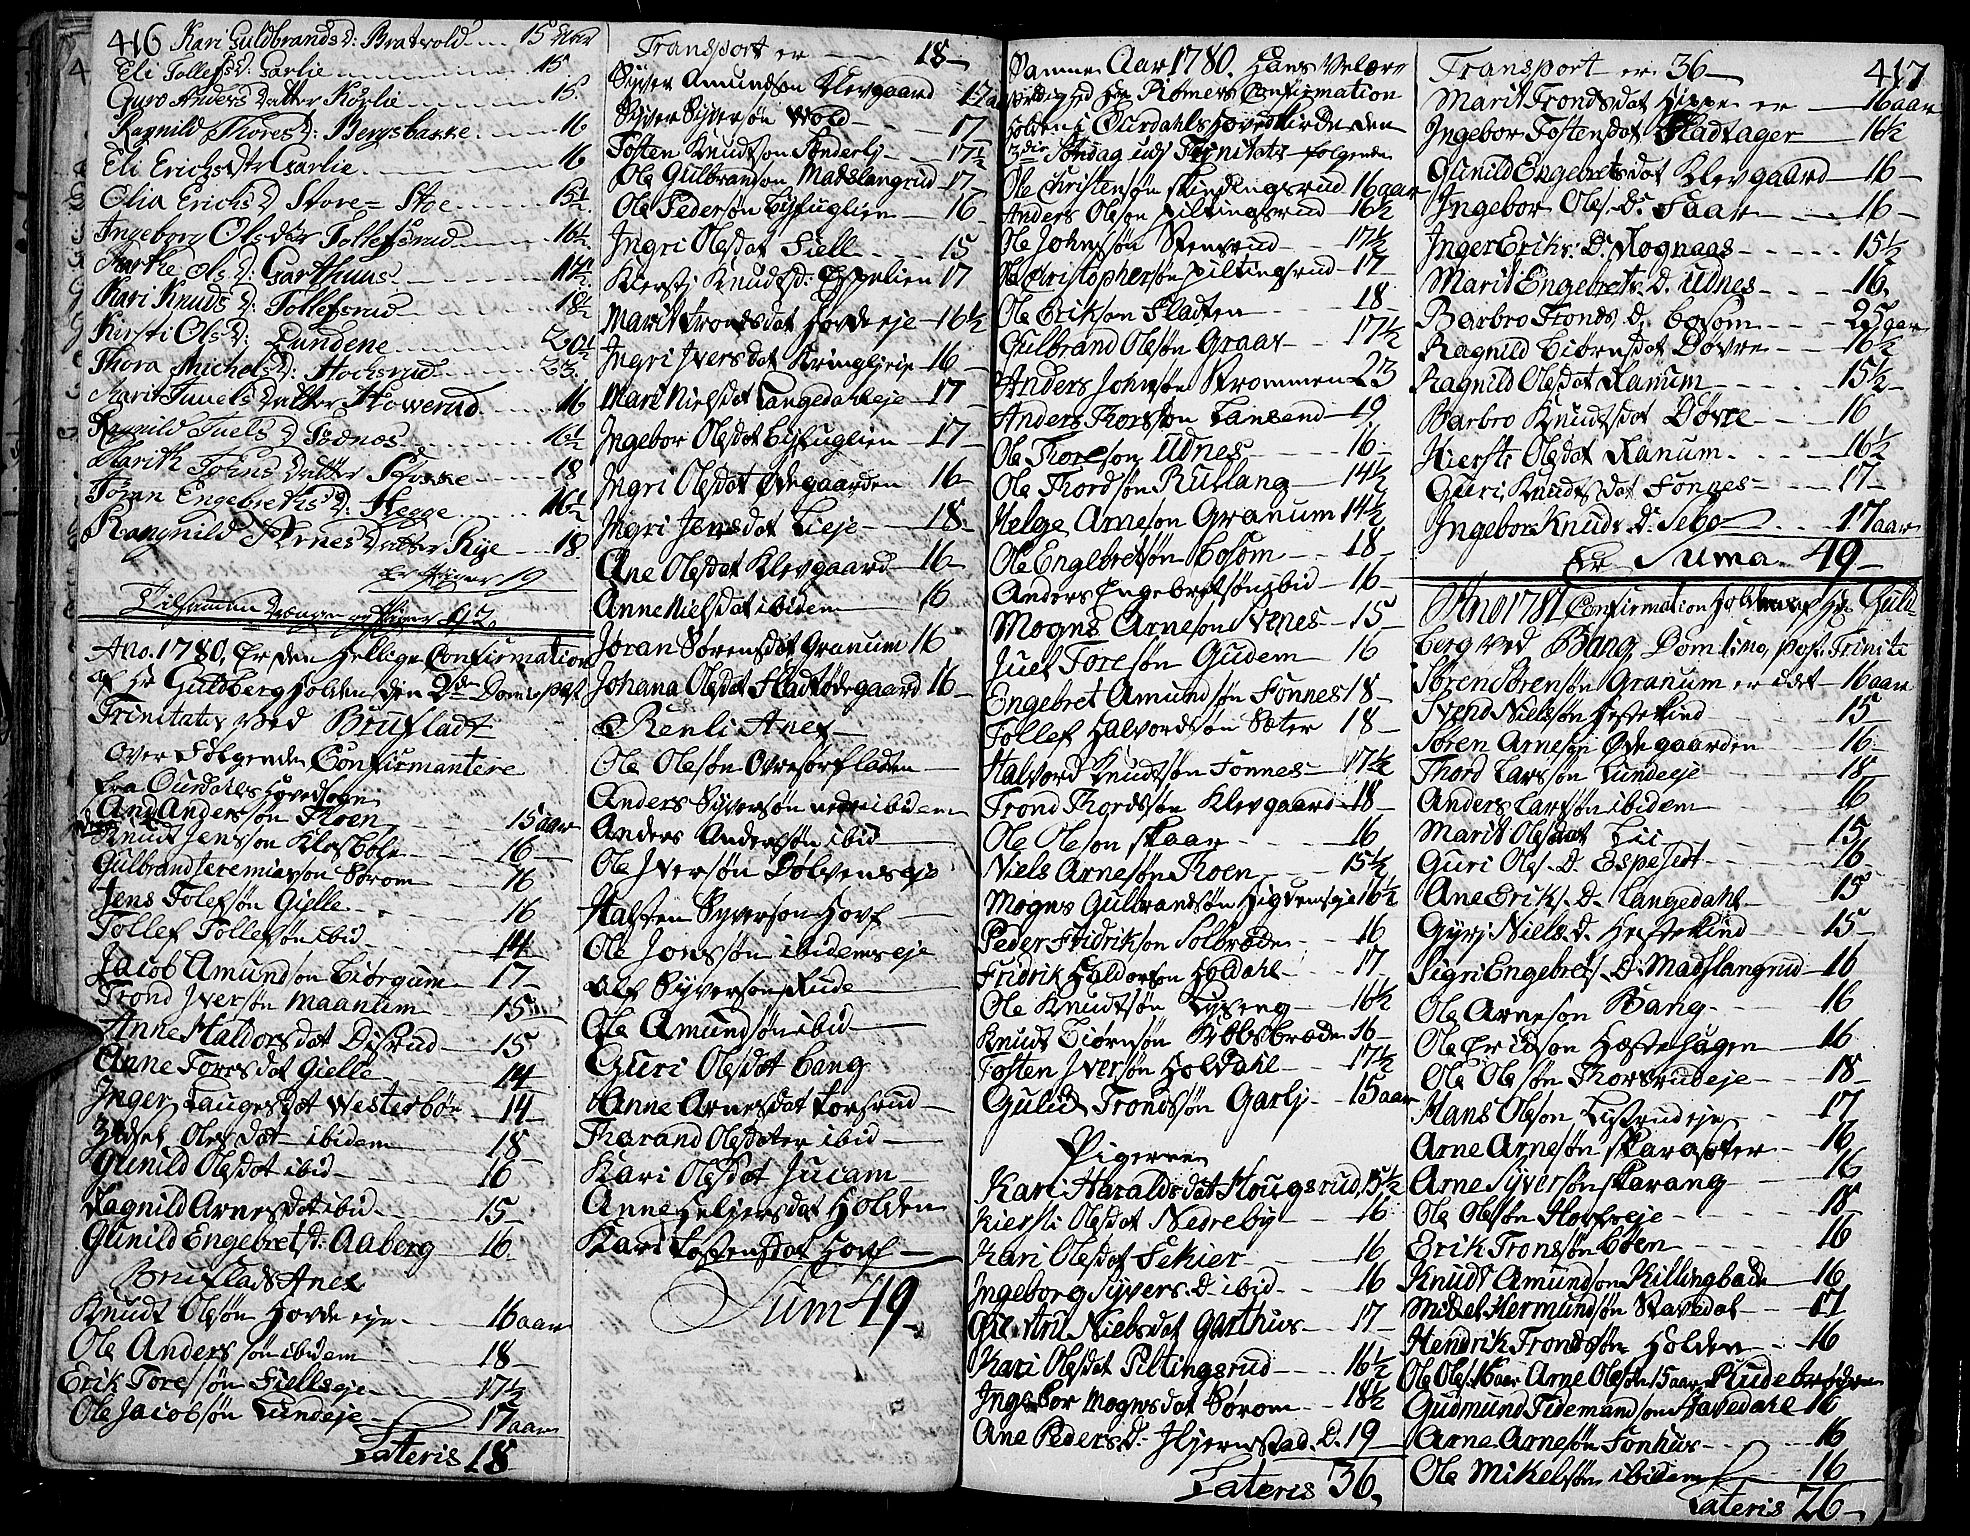 416 Kari Guldbrands D: Bratvold 15 Aar
Eli Tollefs D: Garlie 15
Guro Anders Datter Kørlie 15
Ragnild Thores D: Bergsbakke 16
Eli Erichs Dtr Garlie 16
Olia Erichs D Store= Stoe 15½
Ingeborg Ols Dtr Tollefsrud 16½
Ols D: Garthuus 17½
Kari Knuds D: Tollefsrud 18½
Kirsti Ols D: Lundene 20½
Thora Michels D: Hocksrud 23
Marit Juuels Datter Howerud 16
Ragnild Juels D Fødnes 16½
Marith Johns Datter 18
Jöran Engebreths D: Hegge 16½
Rangnild Arnes Datter Rye 18
Er Piger 19
Tilsamen Drenge og Piger 42
Ano. 1780, Er den hellige Confirmation
af Hr Guldberg holden den 2den Dom: post
Trinitatis ved Brufladt
over følgende Confirmantere
fra Ourdahls hovedsogn
And Andersøn Roen 15 aar
Knudt Jensson Klosbøle 16
Gulbrand Jeremiasson Sørom 16
Jens Tolefsøn Gielle 16
Tollef Tollefsøn ibid 14
Jacob Amundson Biørgum 17
Trond Iversøn Maanum 15
Anne Haldorsdat Disrud 15
Anne Toresdat Gielle 14
Inger Laugesdat Westerbøe 14
Zidsel Olesdat ibidem 18
Gunild Olesdat ibid 16
Ragnild Arnesdat ibid 15
Gunild Engebretsd: Aaberg 16
Bruflads Anex
Knudt Olsøn Hovde eye 16 aar
Ole Andersøn ibidem 18
Erik Toresøn Fiellseje 17½
Ole Jacobsøn Lundeje 17 aar
Lateris 18
Transport er 18
Syver Amundson Klevgaard 17 aar
Syver Syversøn Wold 17
Tosten Knudtson Sønderlj 17½
Ole Gulbranson Madslangrud 17
Ole Pedersøn Bisfuglien 16
Ingri Olesdat Fiell 15
Kiersti Knudsd: Espelien 17
Marit Trondsdat Hovde eje 16½
Ingri Iversdat Kringlieie 16
Mari Nielsdat Langedahleje 17
Ingebor Olesdat Bisfuglien 17
Ingri Olesdat Ødegaarden 16
Ingri Jensdat Lieje 18
Ane Olesdat Klevgaard 16
Anne Nielsdat ibidem 16
Joran Sørensdat Granum 16
Johana Olesdat Fladtødegaard 16
Renli Anex
Ole Olesøn Øvresørfladen
Anders Syversøn nedre ibidem
Anders Andersøn ibid
Ole Iversøn Dølvenseje
Halsten Syverson Hovf
Ole Jonssøn ibidemseje
Olf Syverson Rude
Ole Amundsøn ibid
Guri Olesdat Bang
Anne Arnesdat Torsrud
Tharand Olesdater ibid
Kari Olesdat Jucam
Anne Heljersdat Holden
Kari Tostensdat Hovf
Sum 49
Samme Aar 1780. Hans Velære
værdighed Hr Rømers Confirmation
holden i Ourdahls hovedkirche den
3die Søndag udj Trinitatis følgende
Ole Christensøn Skindingsrud 16 aar
Anders Oleson Piltingsrud 16½
Ole Johnsøn Stensrud 17½
Ole Christophersøn Piltingsrud 17
Ole Erikson Fladten 18
Gulbrand Olesøn Graav 17½
Anders Johnsøn Strommen 23
Anders Thorsson Lansend 19
Ole Thoreson Udnes 16
Ole Thordsøn Rustang 14½
Helge Arneson Granum 14½
Ole Engebretsøn Bosom 18
Anders Engebretsøn ibid 16
Mogns Arneson Venes 15
Juel Toresøn Gudem 16
Engebret Amundsøn Fonnes 18
Tollef Halvordsøn Sæter 18
Halvord Knudtsøn Fonnes 17½
Trond Thordsøn Klevgaard 18
Ole Oleson Skaar 16
Niels Arnesøn Roen 15½
Mogns Gulbrandsøn Higdenseje 16½
Peder Fridrikson Solbræde 16
Fridrik Haldorson Holdahl 17
Ole Knudtsøn Lyseng 16½
Knudt Biørnsøn Krosbræden 16
Tosten Iversøn Holdahl 17½
Gulick Trondsøn Garlj 15 aar
Pigerne
Kari Haraldsdat Hougsrud 15½
Kiersti Olesdat Nedreby 16
Kari Olesdat Sekier 16
Ingeborg Syvers. D. ibid 16
Giertru Nielsdat Garthus 17
Kari Olesdat Piltingsrud 16½
Ingebor Mognsdat Sørom 18½
Ane Peders D: Hjernstad. D. 19
Lateris 36,
417
Transport er 36
Marit Trondsdat Hippe er 16 aar
Ingebor Tostensdat Fladtager 16½
Gunild Engebretsdat Klevgaard 16
Ingebor Oles. D: Faar 16
Inger Eriks: D. Rognaas 15½
Marit Engebrets. D. Udnes 16
Barbro Tronds D. Bosom 25 aar
Ragnild Biørnsdat Døvre 16½
Ragnild Olesdat Ranum 15½
Barbro Knudtsdat Døvre 16
Kiersti Olesdat Ranum 16½
Guri Knudtsdat Fonnes 17
Ingebor Knuds D: Sebo 17 aar
Er Suma 49
Ano 1781 Confirmation holden af Hr. Guld
berg ved Bang Dom: post Trinit:
Søren Sørensøn Granum er udt 16 aar
Svend Nielssøn Hestekind 15
Soren Arnesøn Ødegaarden 16
Thord Larsøn Lundeje 18
Anders Larsøn ibidem 16
Marit Olesdat Lii 15
Guri Oles. D. Espesedt 16
Ane Eriks. D. Langedahl 15
Gyrj Niels. D. Hestekind 15
Sigri Engebrets. D: Madslangrud 16
Ole Arneson Bang 16
Ole Erikson Hæstehagen 16
Ole Olesøn Thorsrudeje 18
Hans Oleson Lisrudeje 17
Arne Arnesøn Skarasæter 16
Arne Syversøn Skarang 16
Ole Olesøn Hovfseje 18
Erik Tronsøn Bøen 16
Knudt Amundson Killingbach 16
Mikel Hermundsøn Stavedal 17
Hendrik Trondsøn Holden 16
Ole Oles. 16 aar Arne Oleson 15 aar Rudebrøden
Gudmund Tidemandson Stavedahl 16
Arne Arnesøn Fonhus 16
Ole Mikelsøn ibidem 16
Lateris 26